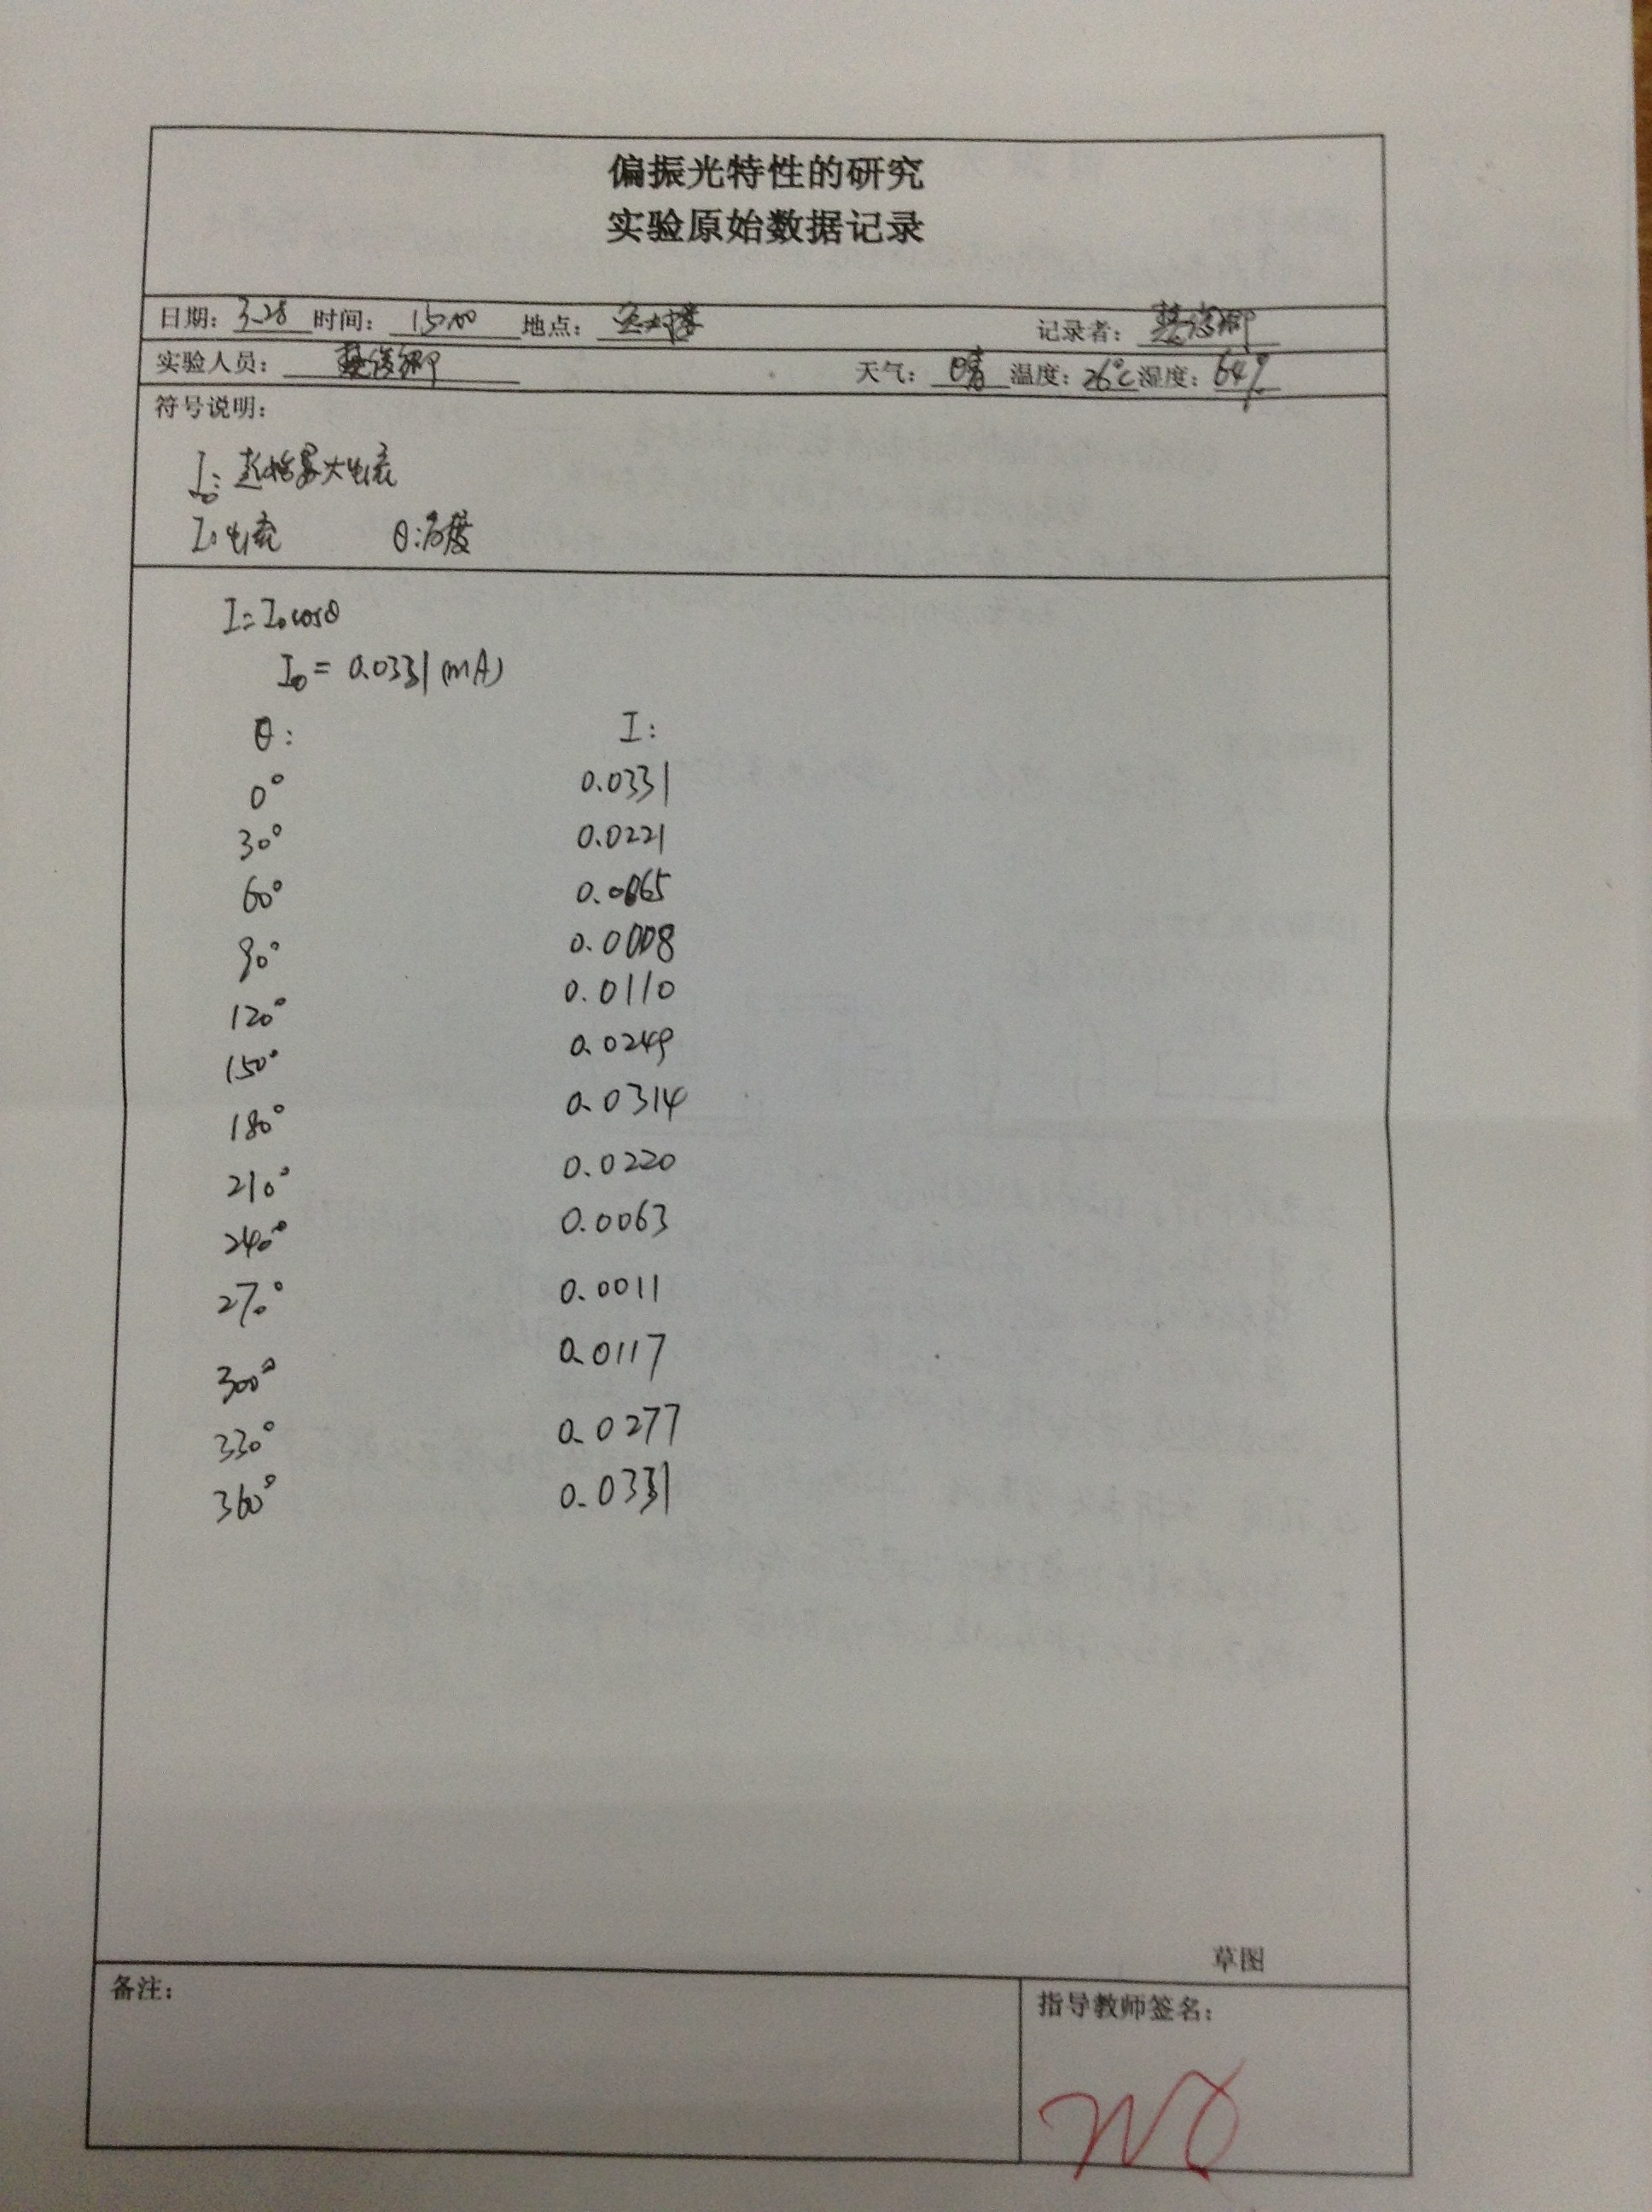 偏振光特性的研究
实验原始数据记录
日期: 3.28 时间: 15:00 地点: 记录者:
实验人员: 天气: 晴 温度: 26℃ 湿度: 64%
符号说明:
I₀: 起始最大电流
I: 电流 θ: 角度
I=I₀cosθ
I₀ = 0.0331 (mA)
θ: I:
0° 0.0331
30° 0.0221
60° 0.0065
90° 0.0008
120° 0.0110
150° 0.0249
180° 0.0314
210° 0.0220
240° 0.0063
270° 0.0011
300° 0.0117
330° 0.0277
360° 0.0331
草图
备注: 指导教师签名: